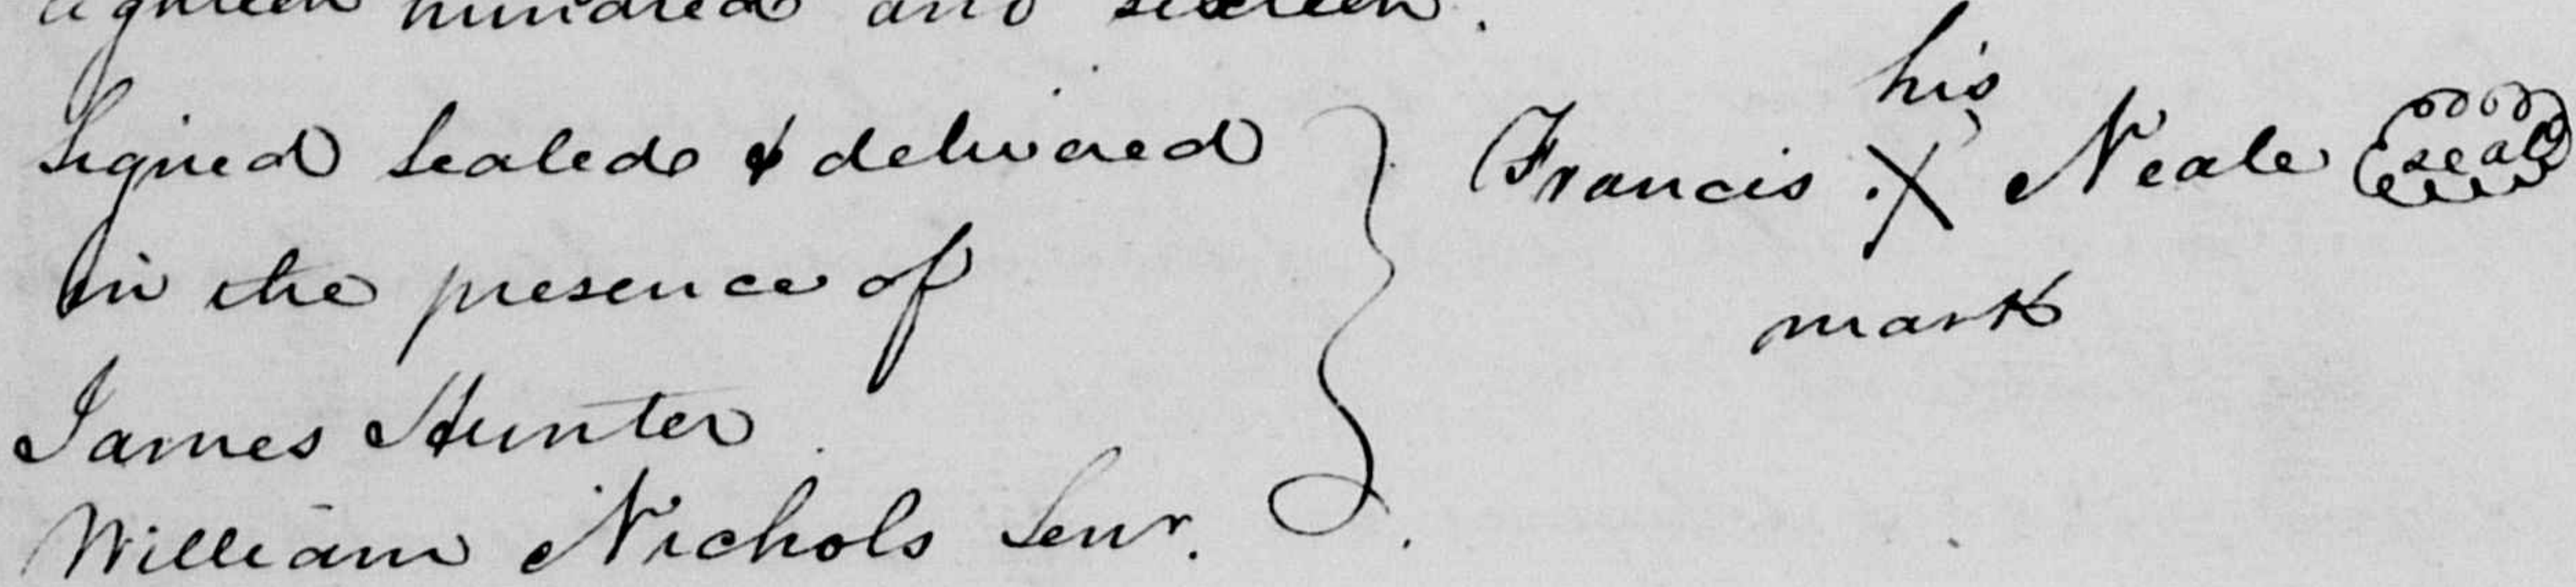 eighteen hundred and sixteen.
Signed Sealed & delivered
in the presence of
James Hunter
William Nichols Senr.
his
Francis X Neale seal
mark